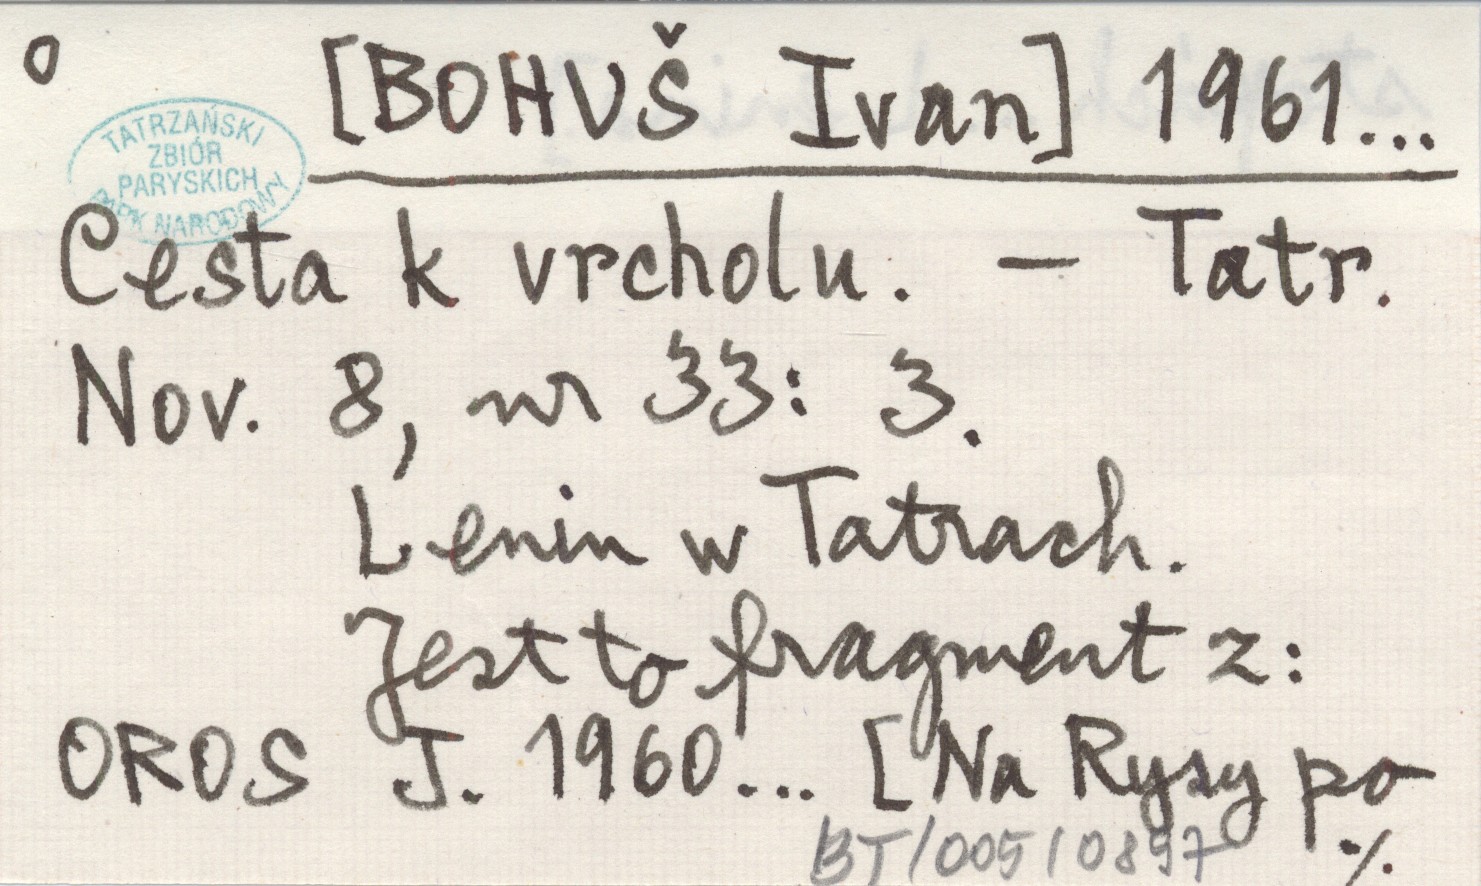 o [BOHUŠ Ivan] 1961...
TATRZAŃSKI
ZBIÓR
PARYSKICH
PARK NARODOWY
Cesta k vrcholu. — Tatr.
Nov. 8, nr 33: 3.
Lenin w Tatrach.
Jest to fragment z:
OROS J. 1960... [Na Rysy po
BT/005/0897
./.